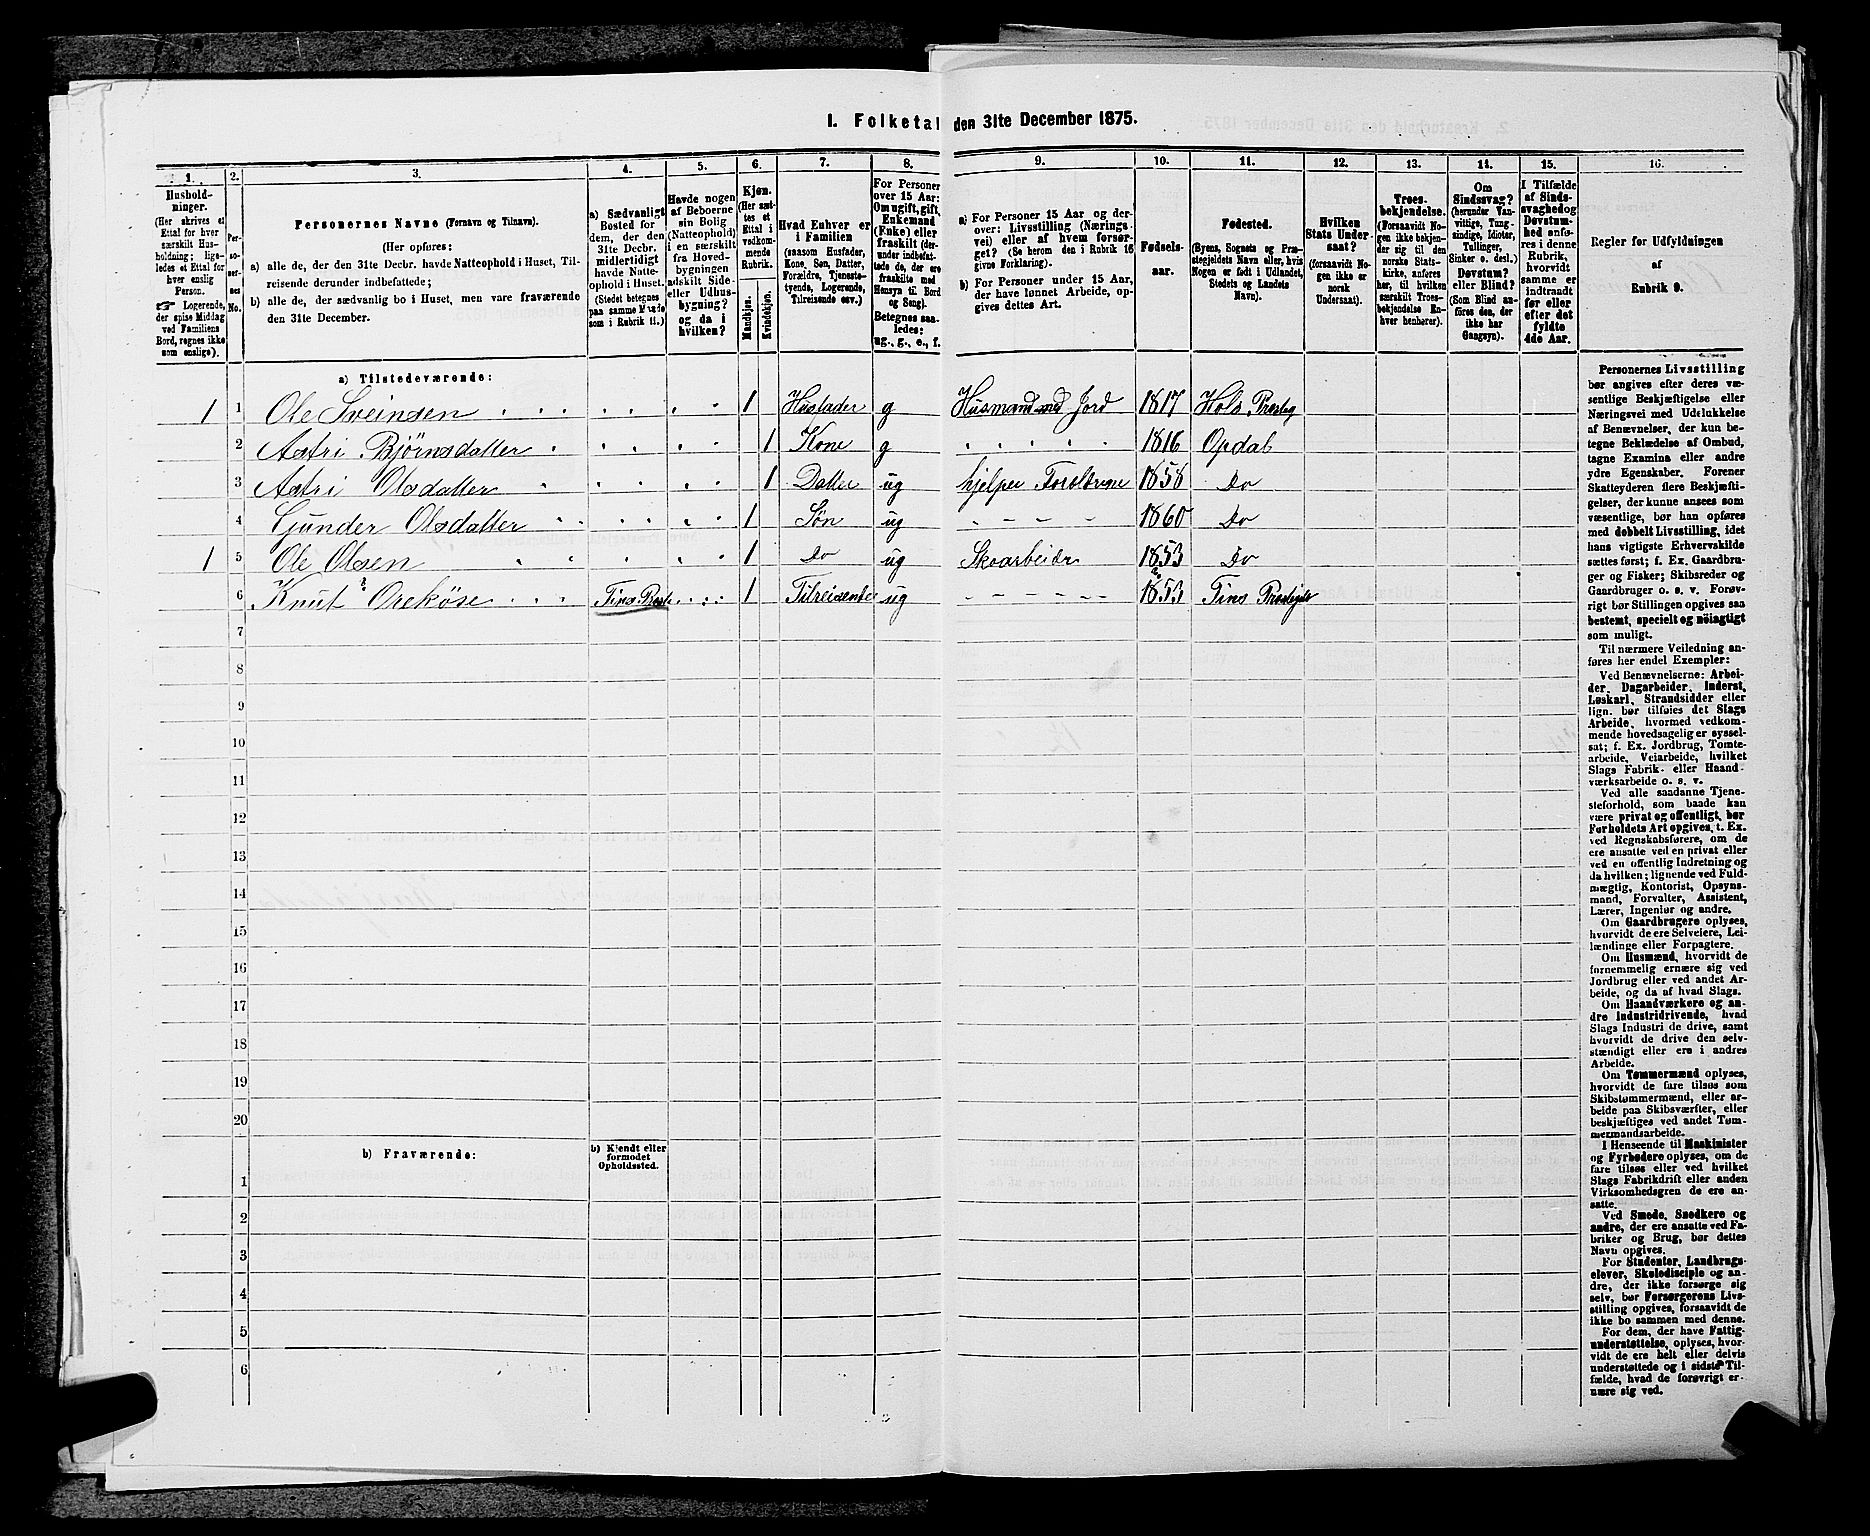 I. Folketal den 31te December 1875.
1. 2. 3. 4. 5. 6. 7. 8. 9. 10. 11. 12. 13. 14. 15. 16.
Hushold-
ninger.
(Her skrives et
Ettal for hver
særskilt Hus-
holdning; lige-
ledes et Ettal for
hver enslig
Person.
☞ Logerende,
der spise Middag
ved Familiens
Bord, regnes ikke
som enslige).
Per-
soner-
nes
No.
Personernes Navne (Fornavn og Tilnavn).
(Her opføres:
a) alle de, der den 31te Decbr. havde Natteophold i Huset, Til-
reisende derunder indbefattede;
b) alle de, der sædvanlig bo i Huset, men vare fraværende
den 31te December.
a) Sædvanligt
Bosted for
dem, der den
31te Decbr.
midlertidigt
havde Natte-
ophold i Huset.
(Stedet betegnes
paa samme Maade
som i Rubrik 11.)
Havde nogen
af Beboerne
sin Bolig
(Natteophold)
i en særskilt
fra Hoved-
bygningen
adskilt Side-
eller Udhus-
bygning?
og da i
hvilken?
Kjøn.
(Her sæt-
tes et
Ettal i
vedkom-
mende
Rubrik.
Mandkjøn.
Kvindekjøn.
Hvad Enhver er
i Familien
(saasom Husfader,
Kone, Søn, Datter,
Forældre, Tjeneste-
tyende, Logerende,
Tilreisende osv.)
For Personer
over 15 Aar:
Om ugift, gift,
Enkemand
(Enke) eller
fraskilt (der-
under indbefat-
tede de, der ere
fraskilte med
Hensyn til Bord
og Seng).
Betegnes saa-
ledes:
ug., g., e., f.
a) For Personer 15 Aar og der-
over: Livsstilling (Nærings-
vei) eller af hvem forsør-
get? (Se herom den i Rubrik 16
givne Forklaring).
b) For Personer under 15 Aar,
der have lønnet Arbeide, op-
gives dettes Art.
Fødsels-
aar.
Fødested.
(Byens, Sognets og Præ-
stegjeldets Navn eller, hvis
Nogen er født i Udlandet,
Stedets og Landets
Navn).
Hvilken
Stats Under-
saat?
(forsaavidt No-
gen ikke er
norsk
Undersaat).
Troes-
bekjendelse.
(Forsaavidt No-
gen ikke bekjen-
der sig til den
norske Stats-
kirke, anføres
her, til hvilken
særskilt Troes-
bekjendelse En-
hver henhører).
Om
Sindssvag?
(herunder Van-
vittige, Tung-
sindige, Idioter,
Tullinger,
Sinker o. desl.)
Døvstum?
eller Blind?
(Som Blind an-
føres den, der
ikke har
Gangsyn).
I Tilfælde
af Sinds-
svaghed og
Døvstum-
hed anfø-
res i denne
Rubrik,
hvorvidt
samme er
indtraadt
før eller
efter det
fyldte
4de Aar.
Regler for Udfyldningen
af
Rubrik 9.
a) Tilstedeværende:
1 1 Ole Sveinsen 1 Husfader g Husmand med Jord 1817 Hols Prestg
2 Astri Bjørnsdatter 1 Kone g 1816 Opdal
3 Astri Olsdatter 1 Datter ug hjelper Forældrene 1858 Do
4 Gunder Olsdatter 1 Søn ug 1860 Do
1 5 Ole Olsen 1 Do ug Skoarbeider 1853 Do
6 Knut Orekøse Tins Prest 1 Tilreisende ug 1853 Tins Prestgjeld
7
8
9
10
11
12
13
14
15
16
17
18
19
20
b) Fraværende:
b) Kjendt eller
formodet
Opholdssted.
1
2
3
4
5
6
Personernes Livsstilling
bør angives efter deres væ-
sentlige Beskjæftigelse eller
Næringsvei med Udelukkelse
af Benævnelser, der kun be-
tegne Beklædelse af Ombud,
tagne Examina eller andre
ydre Egenskaber. Forener
Skatteyderen flere Beskjæfti-
gelser, der kunne ansees som
væsentlige, bør han opføres
med dobbelt Livsstilling, idet
hans vigtigste Erhvervskilde
sættes først; f. Ex. Gaardbru-
ger og Fisker; Skibsreder og
Gaardbruger o. s. v. Forøv-
rigt bør Stillingen opgives saa
bestemt, specielt og nöiagtigt
som muligt.
Til nærmere Veiledning an-
føres her endel Exempler:
Ved Benævnelserne: Arbei-
der, Dagarbeider, Inderst,
Løskarl, Strandsidder eller
lign. bør tilføies det Slags
Arbeide, hvormed vedkom-
mende hovedsagelig er syssel-
sat; f. Ex. Jordbrug, Tomte-
arbeide, Veiarbeide, hvilket
Slags Fabrik- eller Haand-
værksarbeide o. s. v.
Ved alle saadanne Tjene-
steforhold, som baade kan
være privat og offentligt, bør
Forholdets Art opgives, t. Ex.
ved Regnskabsførere, om de
ere ansatte ved en privat eller
ved en offentlig Indretning og
da hvilken; lignende ved Fuld-
mægtig, Kontorist, Opsyns-
mand, Forvalter, Assistent,
Lærer, Ingeniør og andre.
Om Gaardbrugere oplyses,
hvorvidt de ere Selveiere, Lei-
lændinge eller Forpagtere.
Om Husmænd, hvorvidt de
fornemmelig ernære sig ved
Jordbrug eller ved andet Ar-
beide, og da af hvad Slags.
Om Haandværkere og an-
dre Industridrivende, hvad
Slags Industri de drive, samt
hvorvidt de drive den selv-
stændigt eller ere i andres
Arbeide.
Om Tømmermænd oplyses,
hvorvidt de fare tilsøs som
Skibstømmermænd, eller ar-
beide paa Skibsværfter, eller
beskjæftiges ved andet Tøm-
mermandsarbeide.
I Henseende til Maskinister
og Fyrbødere oplyses, om de
fare tilsøs eller ved hvilket
Slags Fabrikdrift eller anden
Virksomhedsgren de ere an-
satte.
Ved Smede, Snedkere og
andre, der ere ansatte ved Fa-
briker og Brug, bør dettes
Navn opgives.
For Studenter, Landbrugs-
elever, Skoledisciple og an-
dre, der ikke forsørge sig
selv, bør Forsørgerens Livs-
stilling opgives, forsaavidt de
ikke bo sammen med denne.
For dem, der have Fattig-
understøttelse, oplyses, hvor-
vidt de ere helt eller delvis
understøttede og i sidste Til-
fælde, hvad de forøvrigt er-
nære sig ved.